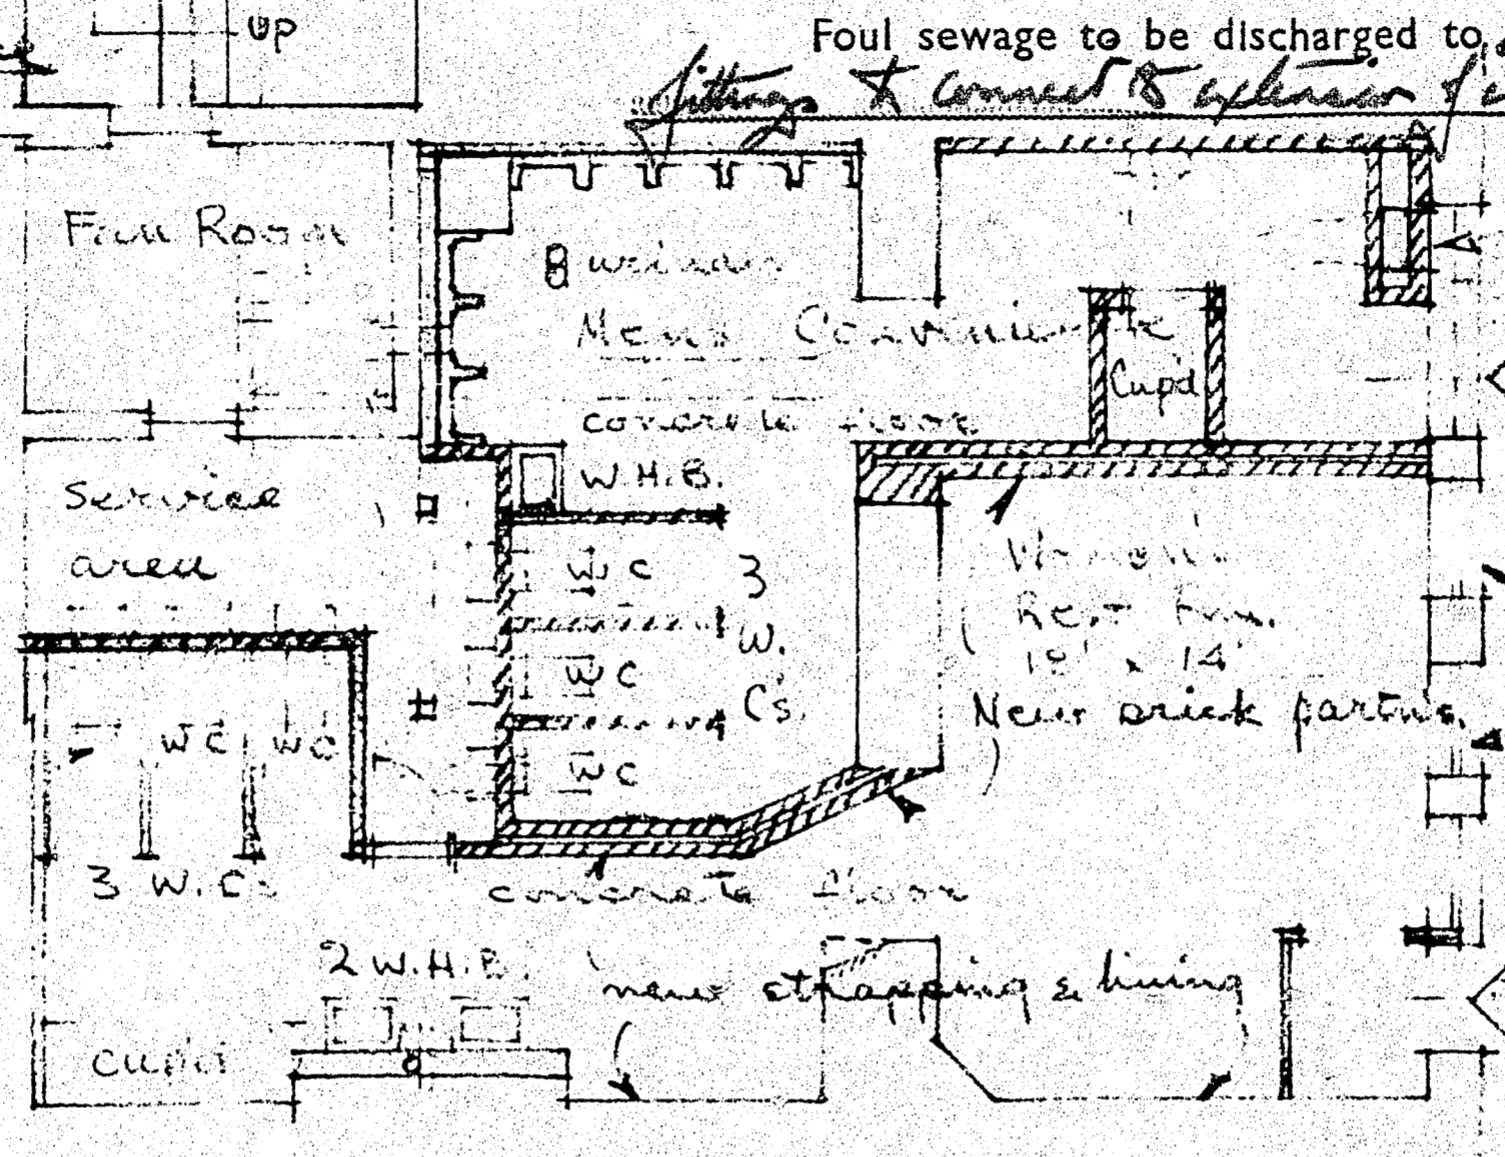 up
Foul sewage to be discharged to
fittings to connect to extension of
Fan Room
8 urinals
Men's Convenience
Cup'd
concrete floor
W.H.B.
Service
area
W C
3
W.
C's.
W C
W C
Women's
Rest Rm.
18' x 14'
New brick partns.
W C
W C
3 W.C's
concrete floor
2 W.H.B.
new strapping & lining
cup'd